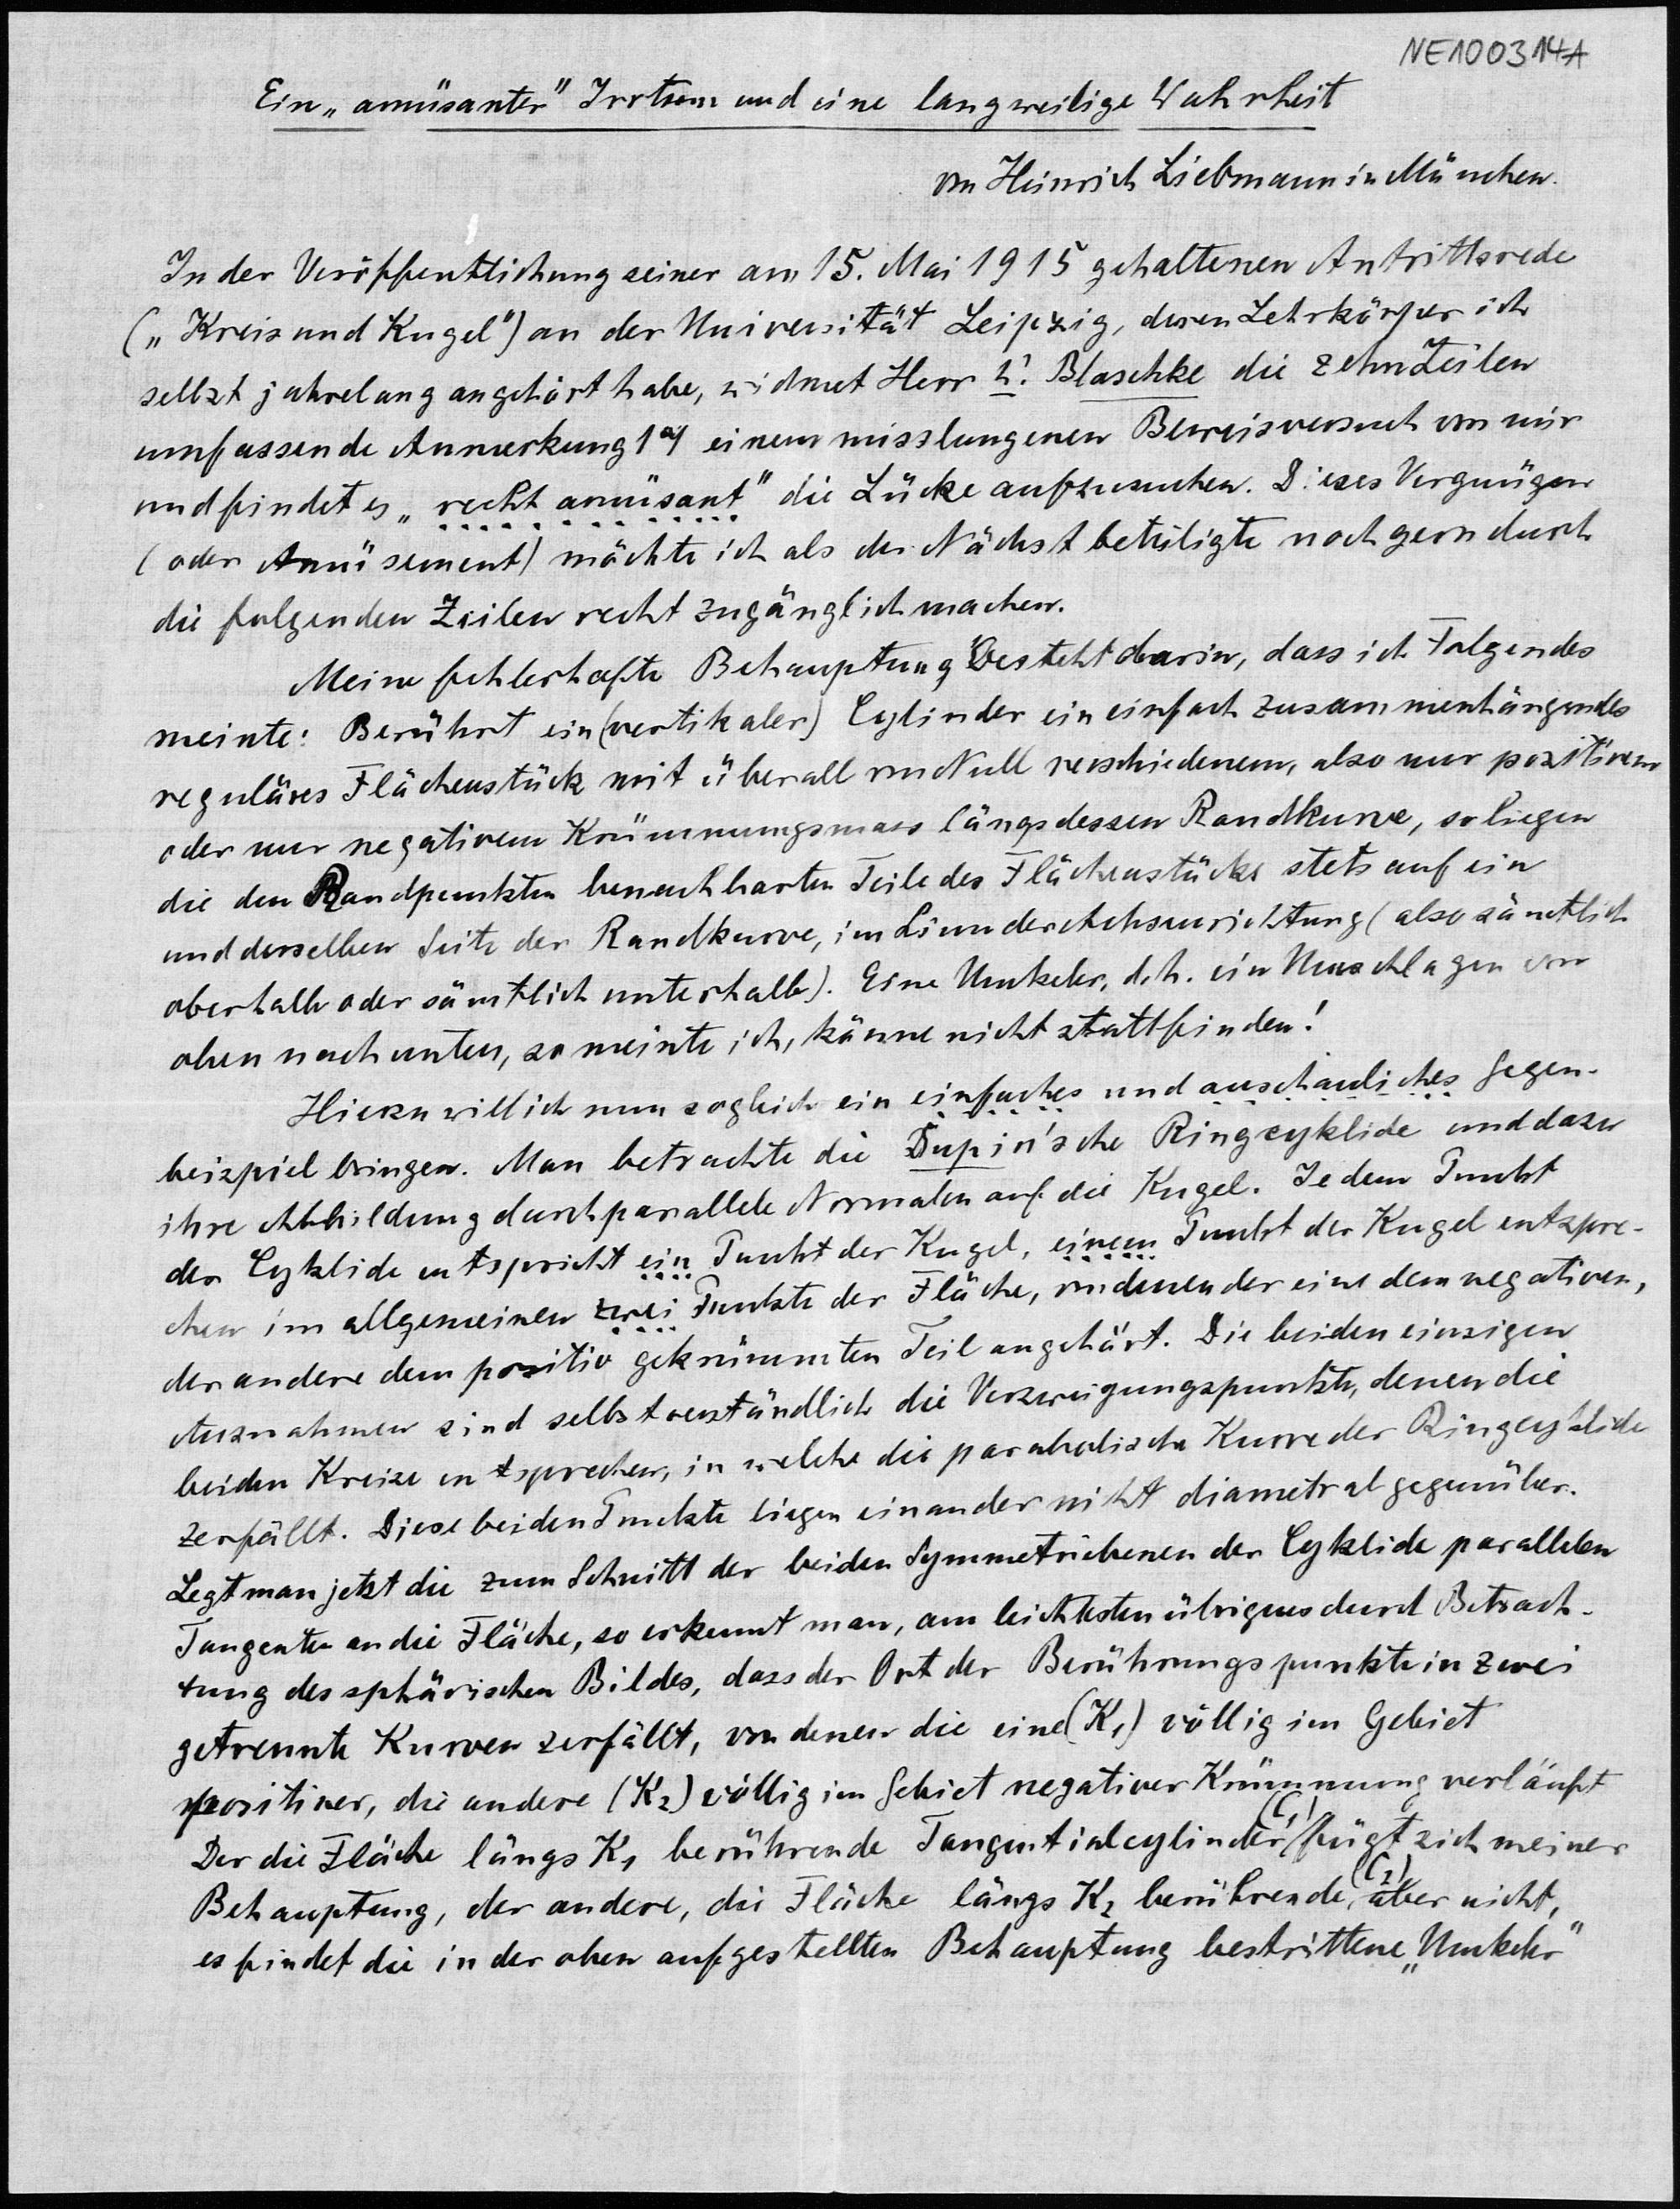 NE100314A
Ein „amüsanter" Irrtum und eine langweilige Wahrheit
von Heinrich Liebmann in München.
In der Veröffentlichung seiner am 15. Mai 1915 gehaltenen Antrittsrede
(„Kreis und Kugel") an der Universität Leipzig, deren Lehrkörper ich
selbst jahrelang angehört habe, widmet Herr Blaschke die zehn Zeilen
umfassende Anmerkung 19) einem misslungenen Beweisversuch von mir
und findet es „recht amüsant" die Lücke aufzusuchen. Dieses Vergnügen
(oder Amüsement) möchte ich als der Nächstbeteiligte noch gern durch
die folgenden Zeilen recht zugänglich machen.
Meine fehlerhafte Behauptung besteht darin, dass ich Folgendes
meinte: Berührt ein (vertikaler) Cylinder ein einfach zusammenhängendes
reguläres Flächenstück mit überall von Null verschiedenem, also nur positivem
oder nur negativem Krümmungsmass längs dessen Randkurve, so liegen
die den Randpunkten benachbarten Teile des Flächenstücks stets auf ein
und derselben Seite der Randkurve, im Sinn der Achsenrichtung (also sämtlich
oberhalb oder sämtlich unterhalb). Eine Umkehr, d.h. ein Umschlagen von
oben nach unten, so meinte ich, könne nicht stattfinden!
Hierzu will ich nun sogleich ein einfaches und anschauliches Gegen-
beispiel bringen. Man betrachte die Dupin'sche Ringcyklide und dazu
ihre Abbildung durch parallele Normalen auf die Kugel. Jedem Punkt
der Cyklide entspricht ein Punkt der Kugel, einem Punkt der Kugel entspre-
chen im allgemeinen zwei Punkte der Fläche, von denen der eine dem negativen,
der andere dem positiv gekrümmten Teil angehört. Die beiden einzigen
Ausnahmen sind selbstverständlich die Verzweigungspunkte, denen die
beiden Kreise entsprechen, in welche die parabolische Kurve der Ringcyklide
zerfällt. Diese beiden Punkte liegen einander nicht diametral gegenüber.
Legt man jetzt die zum Schnitt der beiden Symmetrieebenen der Cyklide parallelen
Tangenten an die Fläche, so erkennt man, am leichtesten übrigens durch Betrach-
tung des sphärischen Bildes, dass der Ort der Berührungspunkte in zwei
getrennte Kurven zerfällt, von denen die eine (K₁) völlig im Gebiet
positiver, die andere (K₂) völlig im Gebiet negativer Krümmung verläuft
Der die Fläche längs K₁ berührende Tangentialcylinder (C₁) fügt sich meiner
Behauptung, der andere, die Fläche längs K₂ berührende (C₂) aber nicht,
es findet die in der oben aufgestellten Behauptung bestrittene „Umkehr"